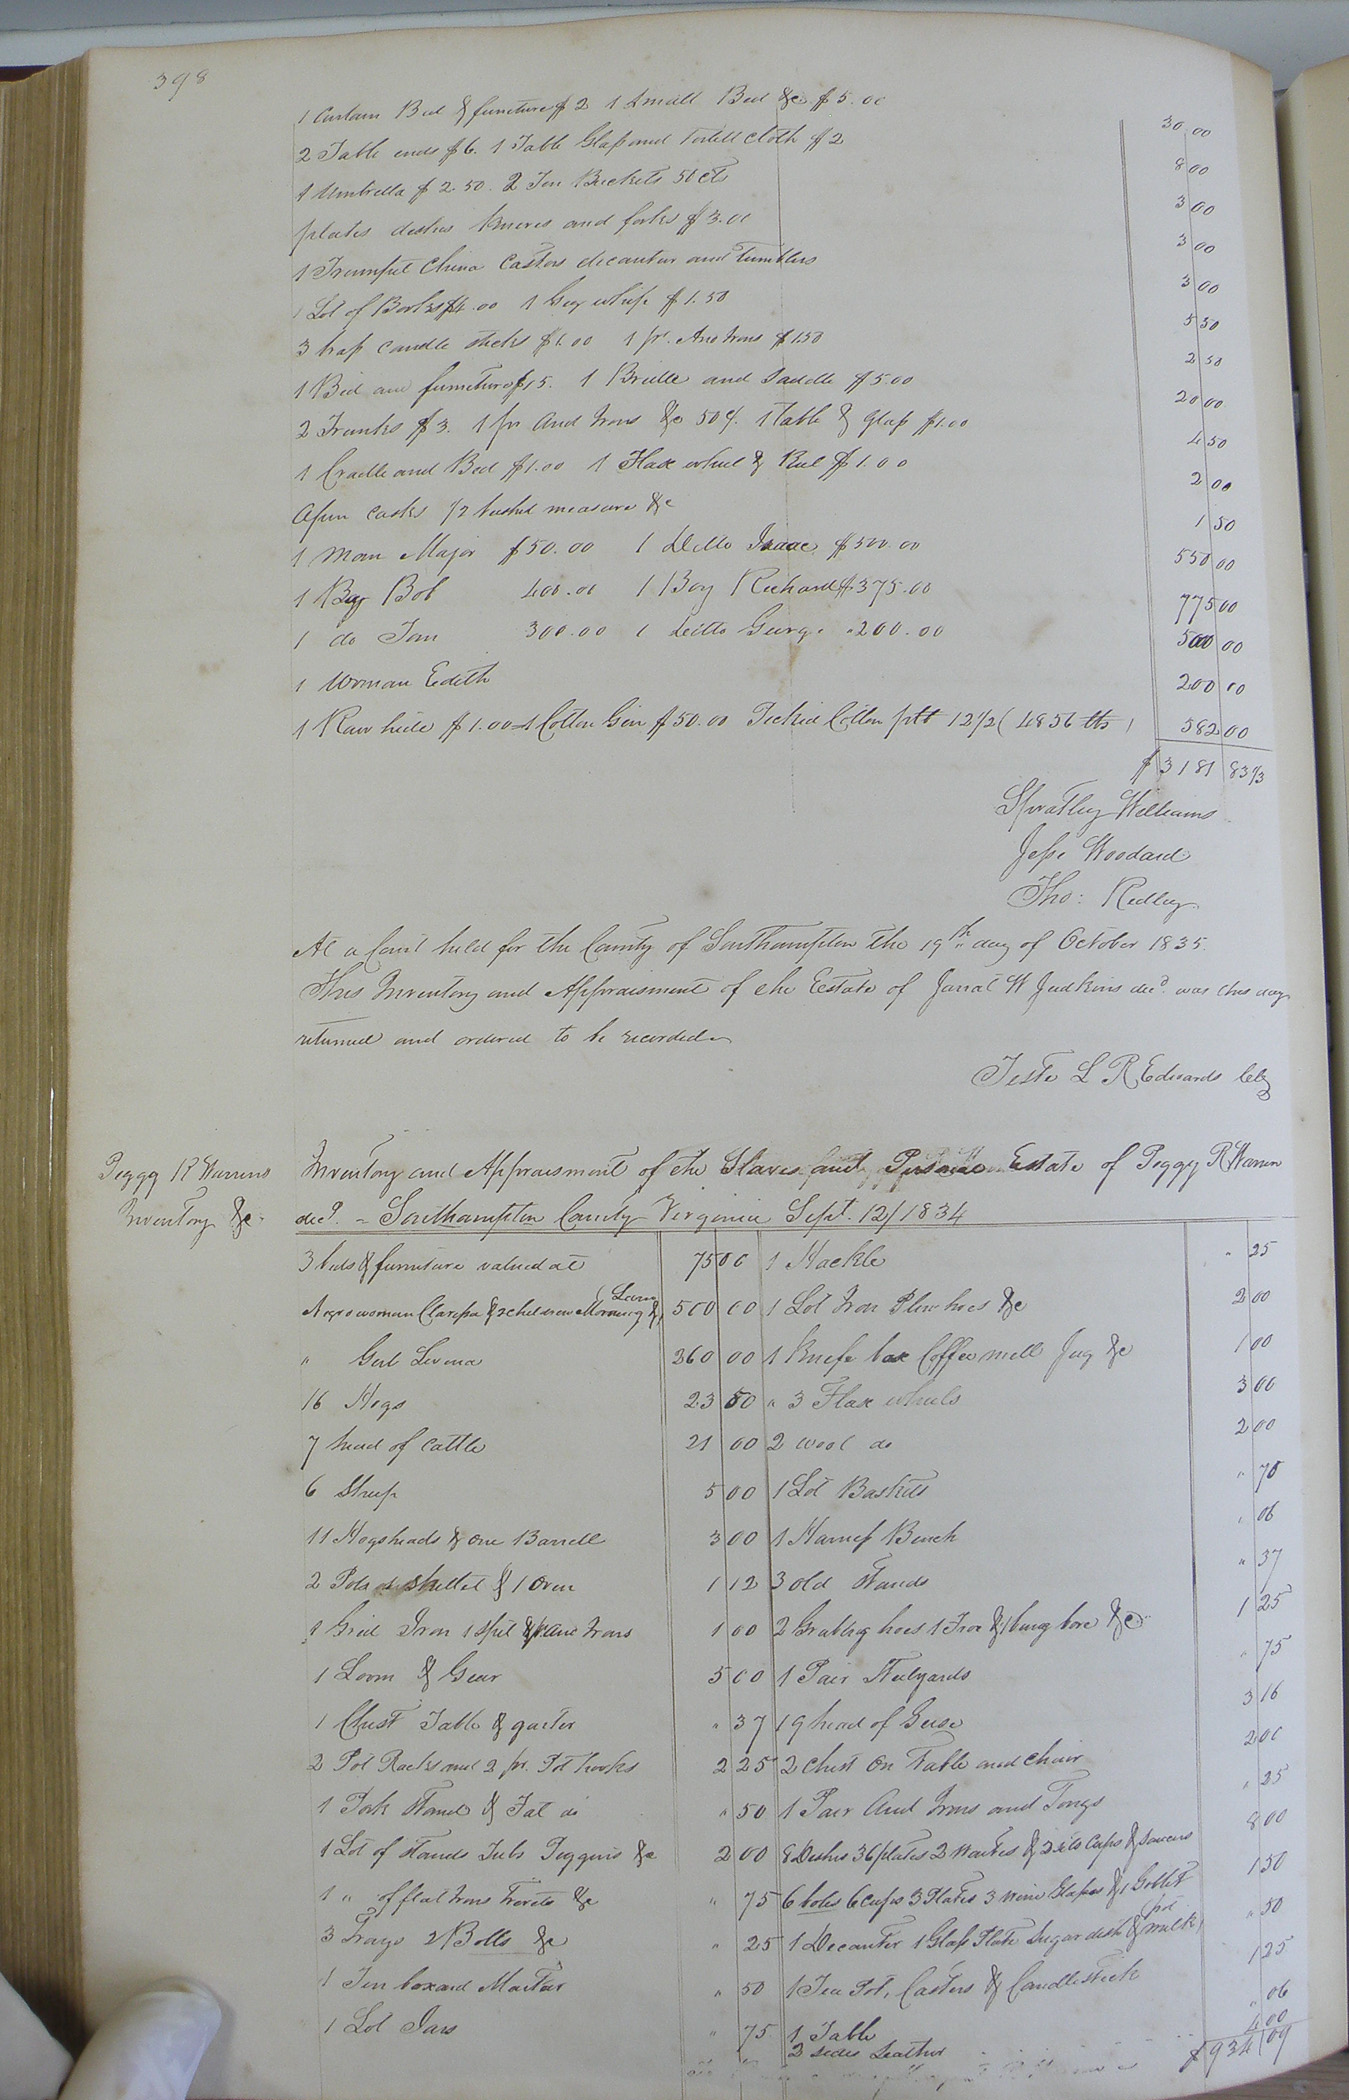 398
1 Curtain Bed & furniture $ 2 1 Small Bed &c $ 5.00 30 00
2 Table ends $6. 1 Table Glass and toilett cloth $2 8 00
1 Umbrella $ 2.50. 2 Tin Buckets 50 cts 3 00
plates dishes knives and forks $3.00 3 00
1 Trumpet China Castors decanter and tumblers 3 00
1 Lot of Books $4.00 1 Gig whip $1.50 5 50
3 brass candle sticks $1.00 1 pr. And Irons $1.50 2 50
1 Bed and furniture $15. 1 Bridle and Saddle $5.00 20 00
2 Trunks $3. 1 pr And Irons &c 50 c. 1 table & glass $1.00 4 50
1 Cradle and Bed $1.00 1 Flax wheel & Reel $1.00 2 00
casks 1/2 bushel measure &c 1 50
1 man Major $50.00 1 Ditto Isaac $500.00 550 00
1 Boy Bob 400.00 1 Boy Richard $375.00 775 00
1 do Tom 300.00 1 ditto George 200.00 500 00
1 Woman Edith 200 00
1 Raw hide $1.00 1 Cotton Gin $50.00 Picked Cotton 12 1/2 (4856 lbs) 582 00
$ 3181 83 1/3
Spratley Williams
Jesse Woodard
Tho: Ridley
At a Court held for the County of Southampton the 19th day of October 1835
This Inventory and Appraisment of the Estate of Jarrat W Judkins decd. was this day
returned and ordered to be recorded
Teste L R Edwards Clk
Peggy R Warrens
Inventory &c
Inventory and Appraisment of the Slaves and Personal Estate of Peggy R Warren
decd. - Southampton County Virginia Sept. 12/1834
3 beds & furniture valued at 75 00 1 Hackle " 25
Negro woman Clarissa & 2 children Morning & 500 00 1 Lot Iron Plow hoes &c 2 00
" Girl Levina 360 00 1 Knife box Coffee mill Jug &c 1 00
16 Hogs 23 50 " 3 Flax wheels 3 00
7 head of cattle 21 00 2 wool do 2 00
6 Sheep 5 00 1 Lot Baskets " 75
11 Hogsheads & one Barrell 3 00 1 Harness Bench " 06
2 Pots 1 skillet & 1 Oven 1 12 3 old Stands " 37
1 Grid Iron 1 Spit & And Irons 1 00 2 Grubbing hoes 1 Froe & 1 bung bore &c 1 25
1 Loom & Gear 5 00 1 Pair Stilyards " 75
1 Chest Table & " 37 19 head of Geese 3 16
2 Pot Racks and 2 pr. Pot hooks 2 25 2 Chest On Table and Chair 2 00
1 Pork Stand & Fat do " 50 1 Pair And Irons and Tongs " 25
1 Lot of Stands Tubs Piggins &c 2 00 8 Dishes 36 plates 2 waites & 2 sets Cups & Saucers 8 00
1 " of flat Irons Trivets &c " 75 6 boles 6 cups 3 Plates 3 Wine Glasses & 1 Goblet 1 50
3 Trays 2 &c " 25 1 Decanter 1 Glass Plate Sugar dish & milk pot " 50
1 Tin box and Mortar " 50 1 Tea Pot, Castors & Candlestick 1 25
1 Lot Jars " 75 1 Table " 06
2 sides Leather 4 00
$ 934 09